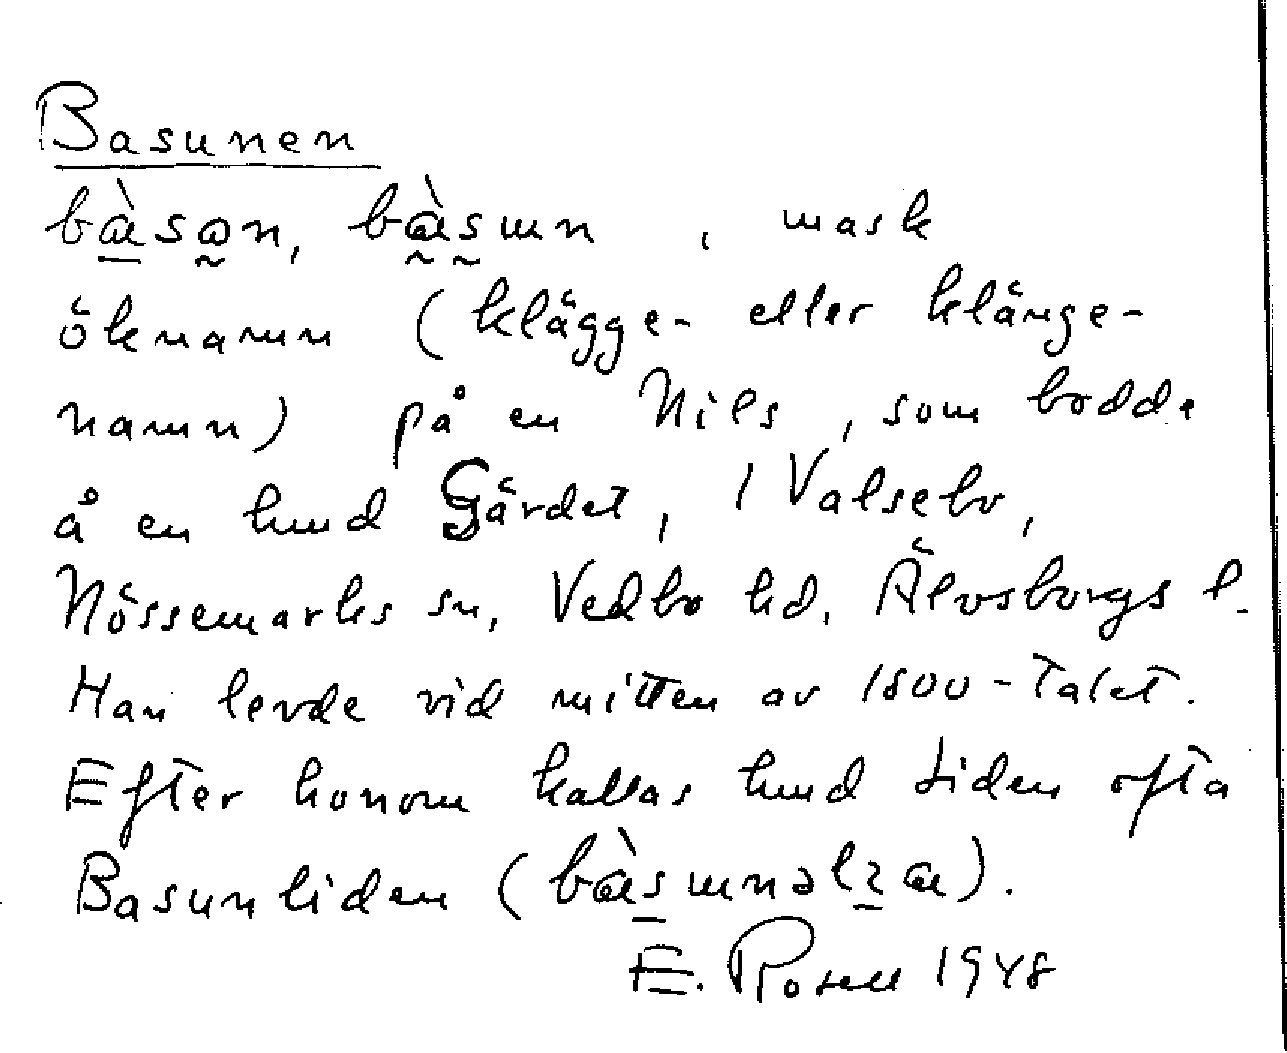 Basunen
bàsɷn, bàsɯn , mask
öknamn (klägge- eller klänge-
namn) på en Nils, som bodde
å en hmd Gärdet, i Valsebo,
Nössemarks sn, Vedbo hd, Älvsborgs l.
Han levde vid mitten av 1800-talet.
Efter honom kallas hmd Liden ofta
Basunliden (bàsɯnəlɩa).
E. Rosell 1948